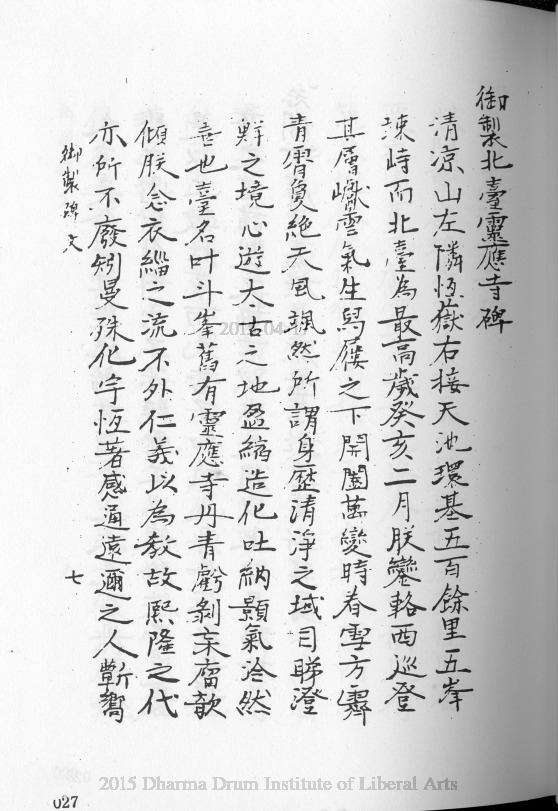 御製北臺靈應寺碑
清凉山左隣恆嶽右接天池環基五百餘里五峯
竦峙而北臺為最高歲癸亥二月朕鑾輅西巡登
其層巘雲氣生舄履之下開闔萬變時春雪方霽
青霄夐絶天風颯然所謂身歷清淨之域目睇澄
鮮之境心遊太古之地盈縮造化吐納顥氣泠然
善也臺名叶斗峯舊有靈應寺丹青虧剝宋腐欹
傾朕念衣緇之流不外仁義以為教故熙隆之代
亦所不廢矧曼殊化宇恆著感通遠邇之人蘄嚮
御製碑文
七
2015 Dharma Drum Institute of Liberal Arts
027